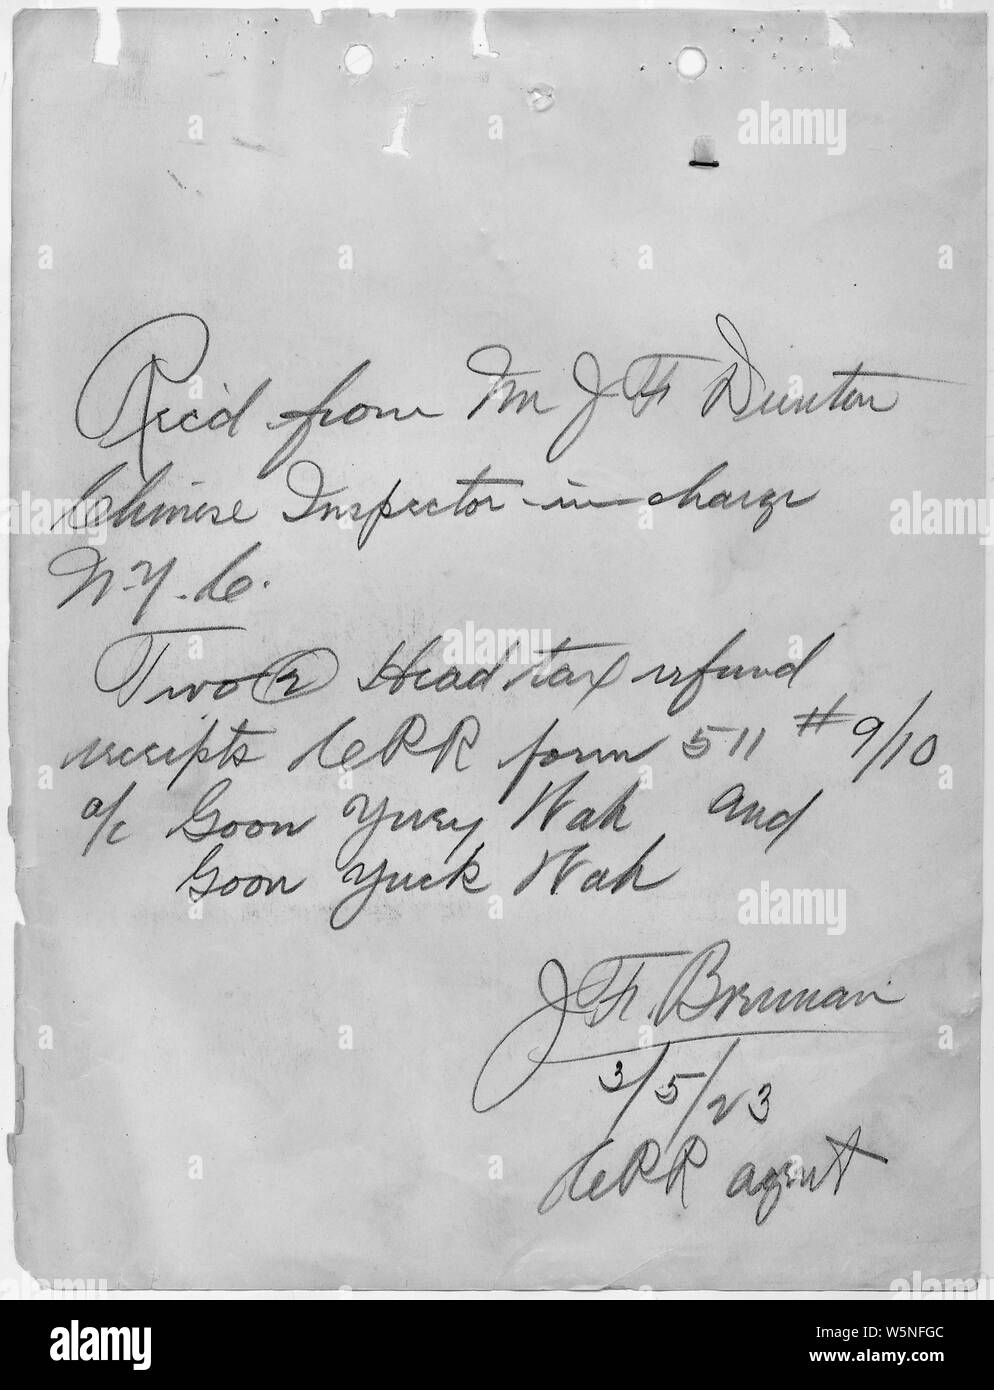 Rec'd from Mr J F Dunton
Chinese Inspector-in-charge
N.Y.C.
Two (2) Head tax refund
receipts CPRR form 511 #9/10
a/c Goon Yuey Wah and
Goon Yuck Wah
J F. Brennan
3/5/23
CPRR agent
alamy
alamy
alamy
alamy
alamy
alamy
alamy
a
a
a
a
a
a
a
a
a
a
a
a
alamy
Image ID: W5NFGC
www.alamy.com